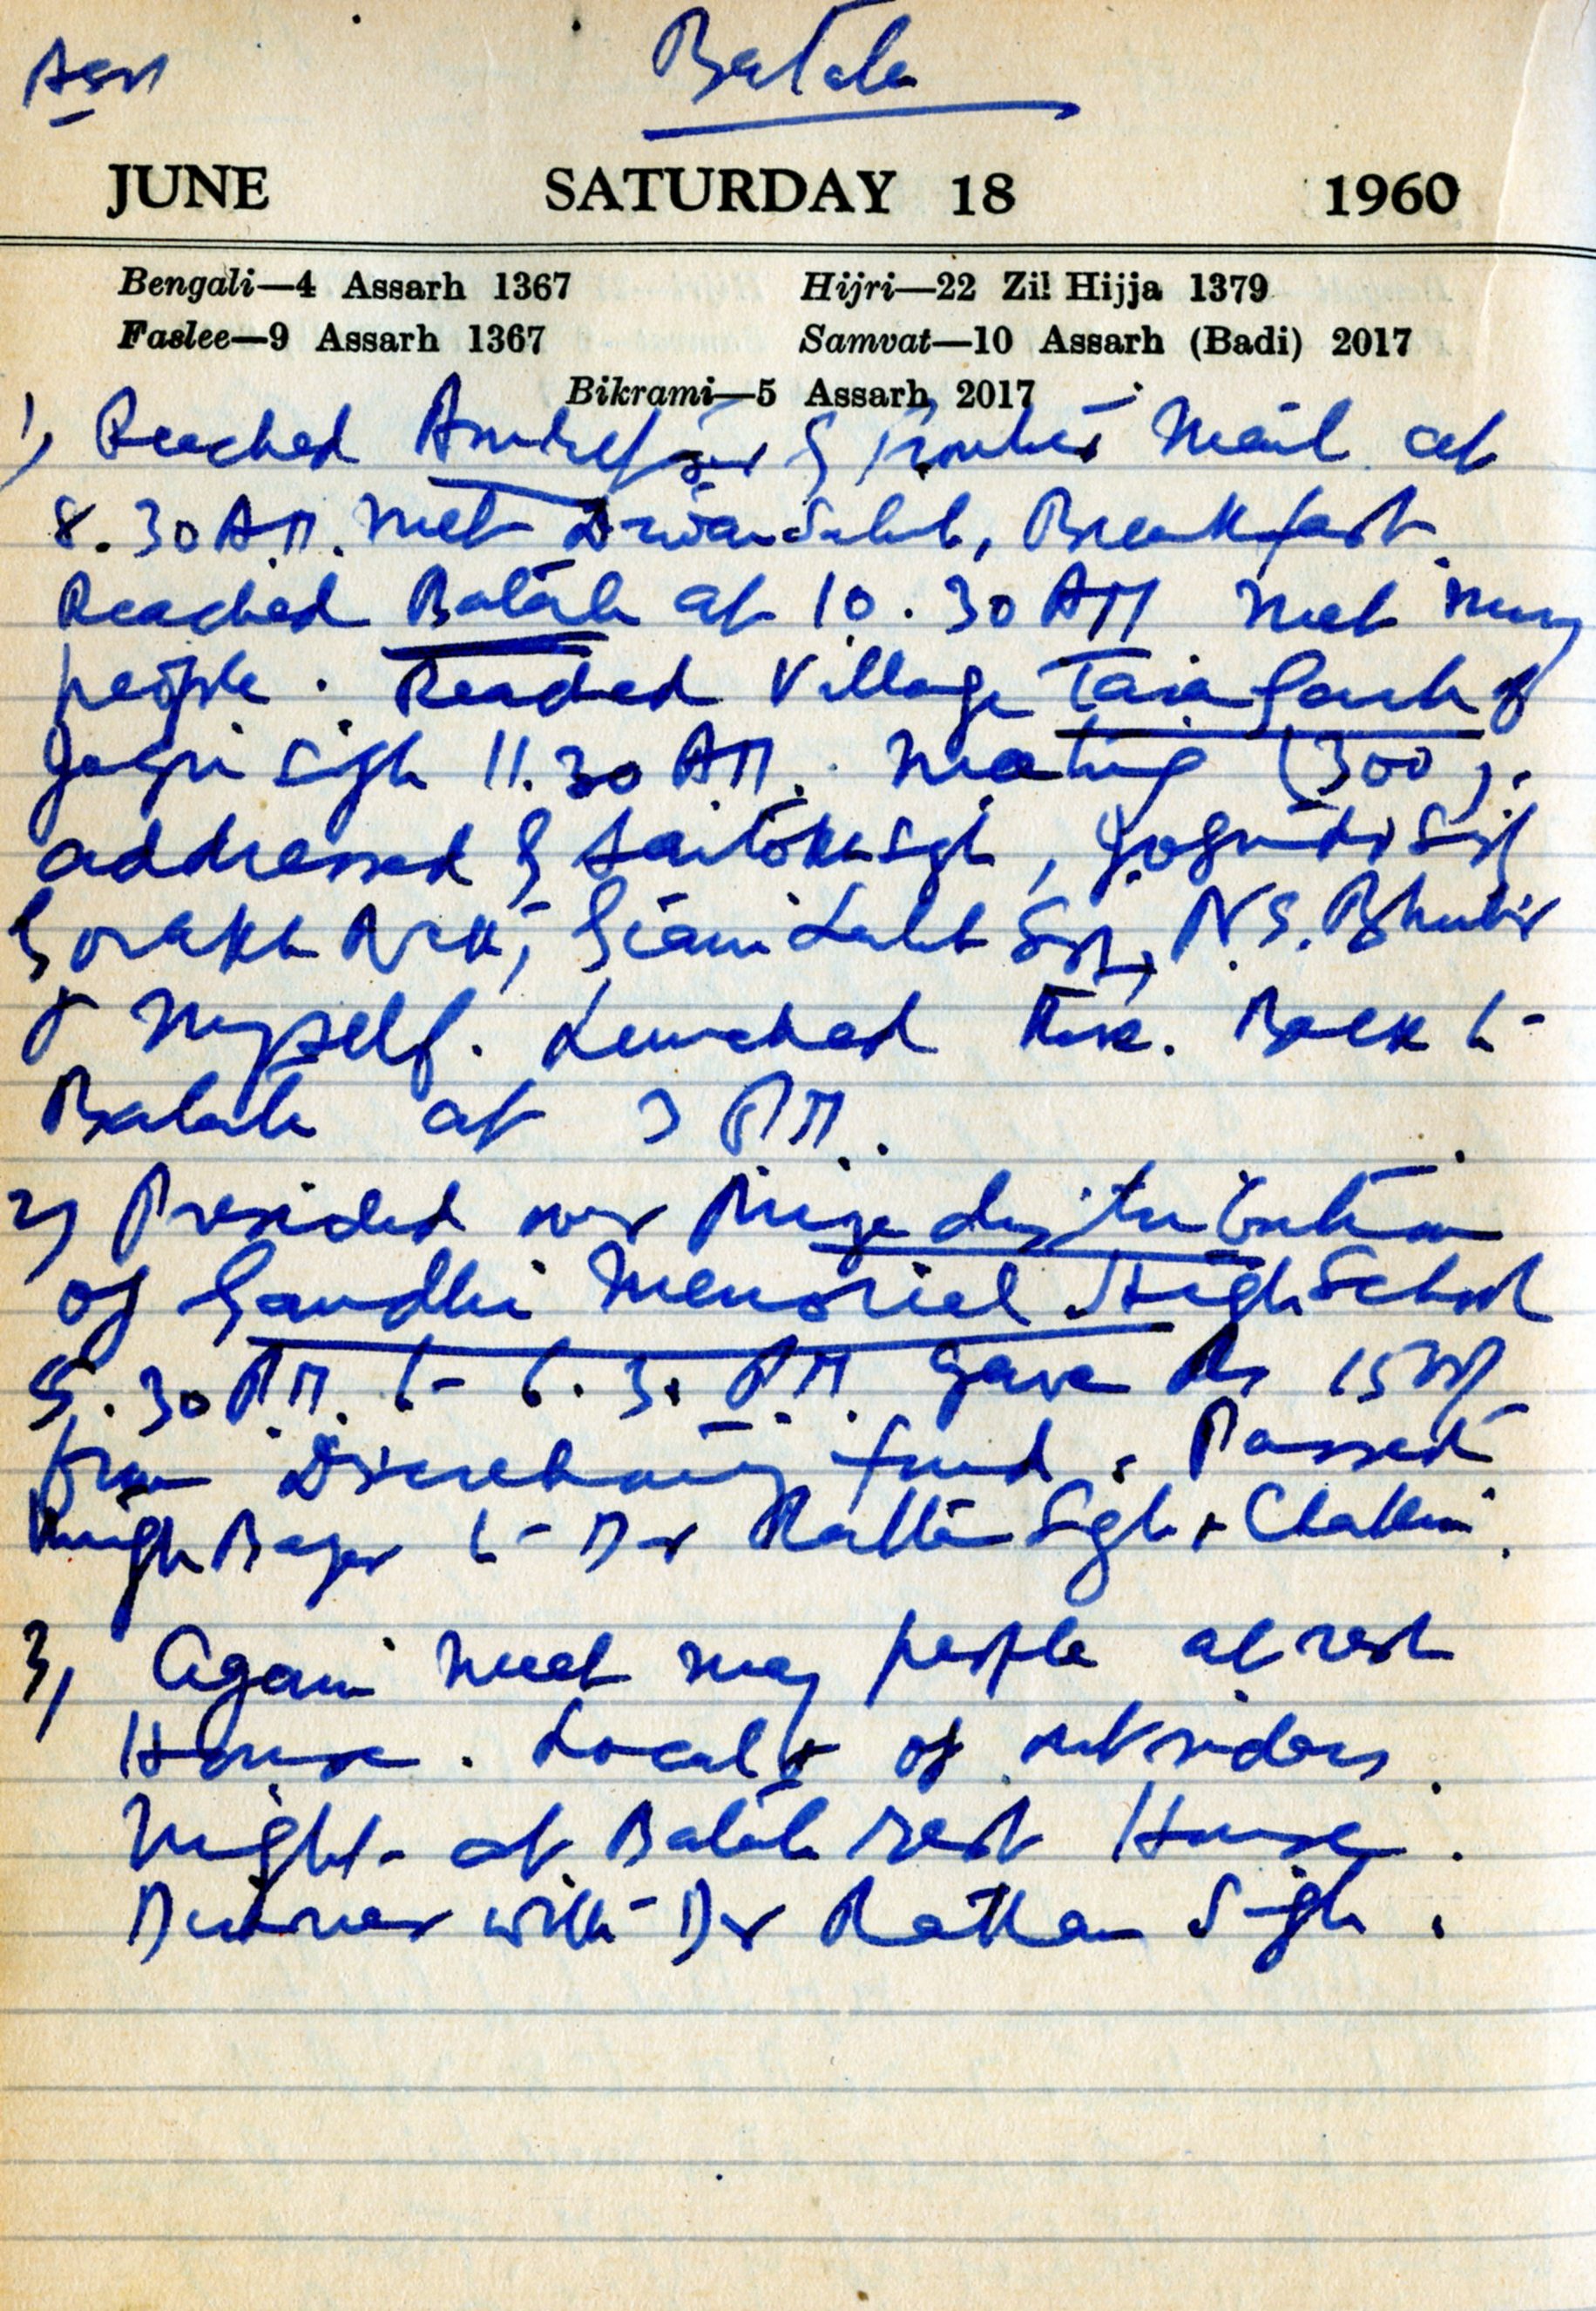 Asr
Batala
JUNE SATURDAY 18 1960
Bengali—4 Assarh 1367 Hijri—22 Zil Hijja 1379
Faslee—9 Assarh 1367 Samvat—10 Assarh (Badi) 2017
Bikrami—5 Assarh 2017
1) Reached Amritsar by Frontier Mail at
8.30 AM. Met Diwan Sahib, Breakfast.
Reached Batala at 10.30 AM Met many
people. Reached Village Tara Garh of
Singh 11.30 AM. Meeting (300).
addressed by Santokh Singh, Joginder Singh
Gorakh Nath, Giani Labh Singh, N.S. Bhuller
& Myself. Lunched there. Back to
Batala at 3 PM.
2) Presided over Prize distribution
of Gandhi Memorial High School
5.30 PM. to 6.30 PM. Gave Rs
from Discretionary fund. Passed
through Bazar to Dr Rattan Singh's
3) Again meet many people at rest
House. Local & of outsiders.
Night at Batala rest House.
Dinner with Dr Rattan Singh.